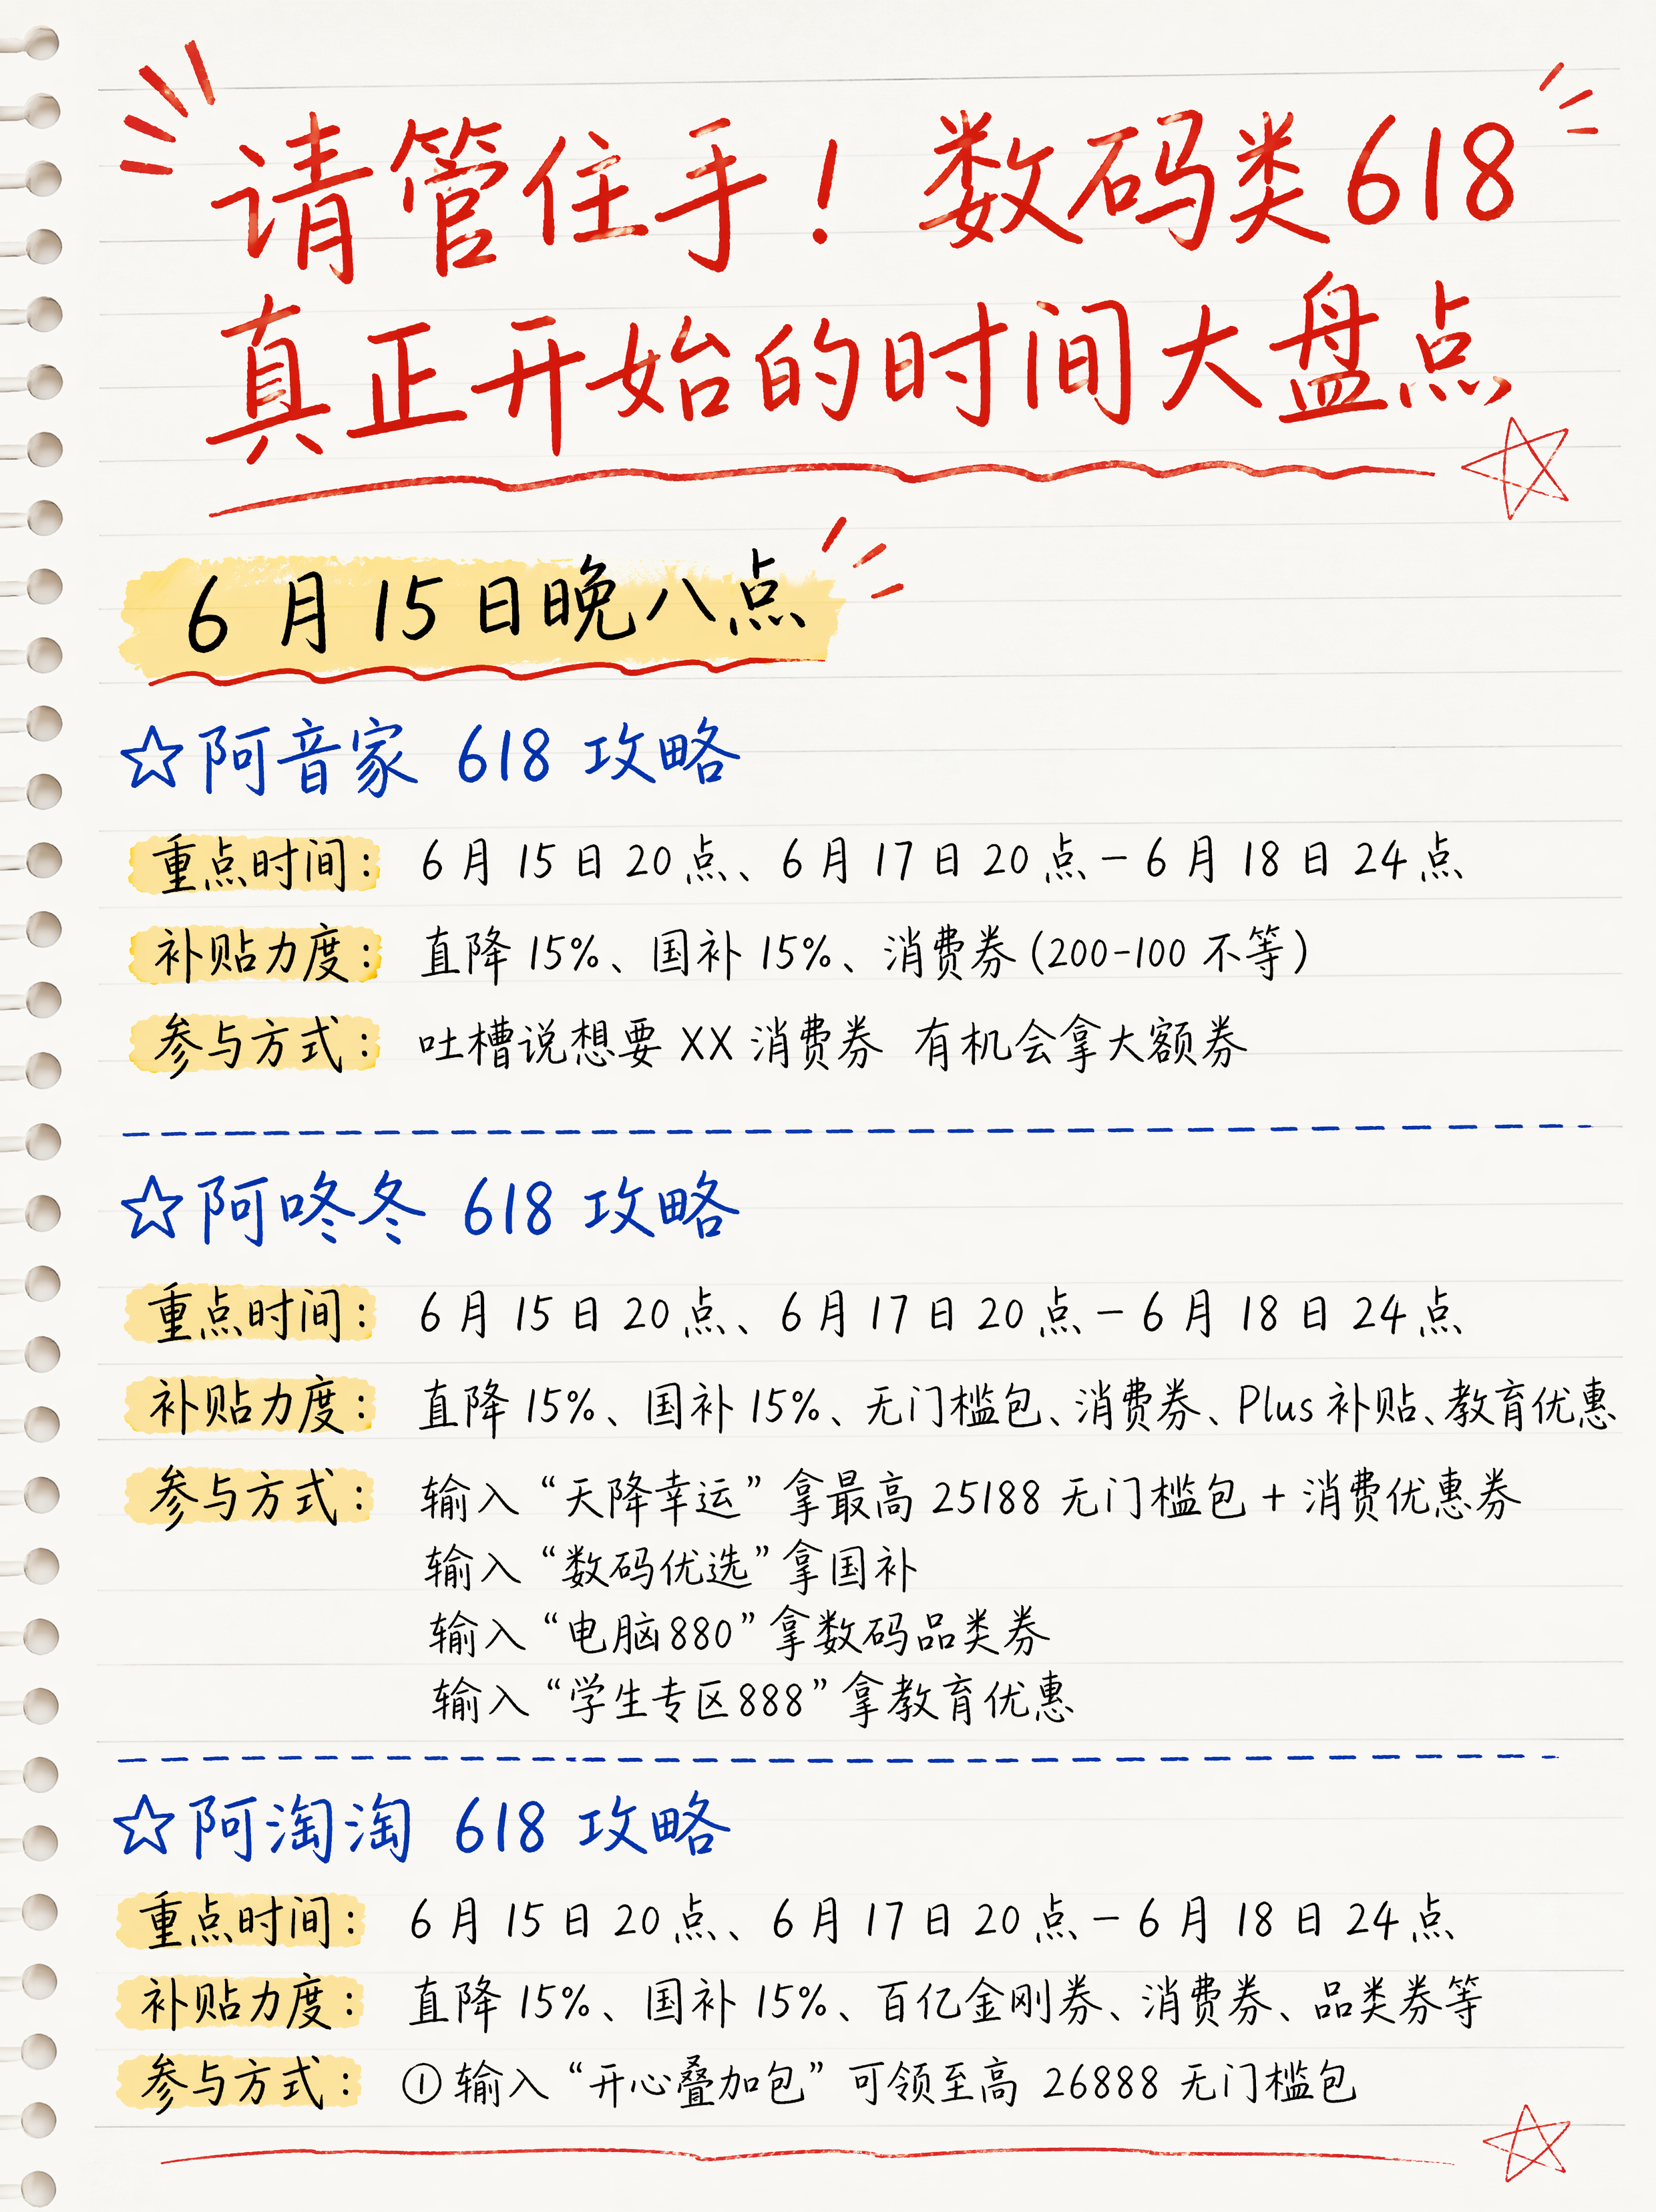 请管住手！数码类618
真正开始的时间大盘点
6月15日晚八点
☆阿音家 618 攻略
重点时间： 6月15日20点、6月17日20点-6月18日24点
补贴力度： 直降15%、国补15%、消费券(200-100不等)
参与方式： 吐槽说想要XX消费券 有机会拿大额券
☆阿咚冬 618 攻略
重点时间： 6月15日20点、6月17日20点-6月18日24点
补贴力度： 直降15%、国补15%、无门槛包、消费券、Plus补贴、教育优惠
参与方式： 输入“天降幸运”拿最高25188无门槛包+消费优惠券
输入“数码优选”拿国补
输入“电脑880”拿数码品类券
输入“学生专区888”拿教育优惠
☆阿淘淘 618 攻略
重点时间： 6月15日20点、6月17日20点-6月18日24点
补贴力度： 直降15%、国补15%、百亿金刚券、消费券、品类券等
参与方式： ①输入“开心叠加包”可领至高 26888 无门槛包